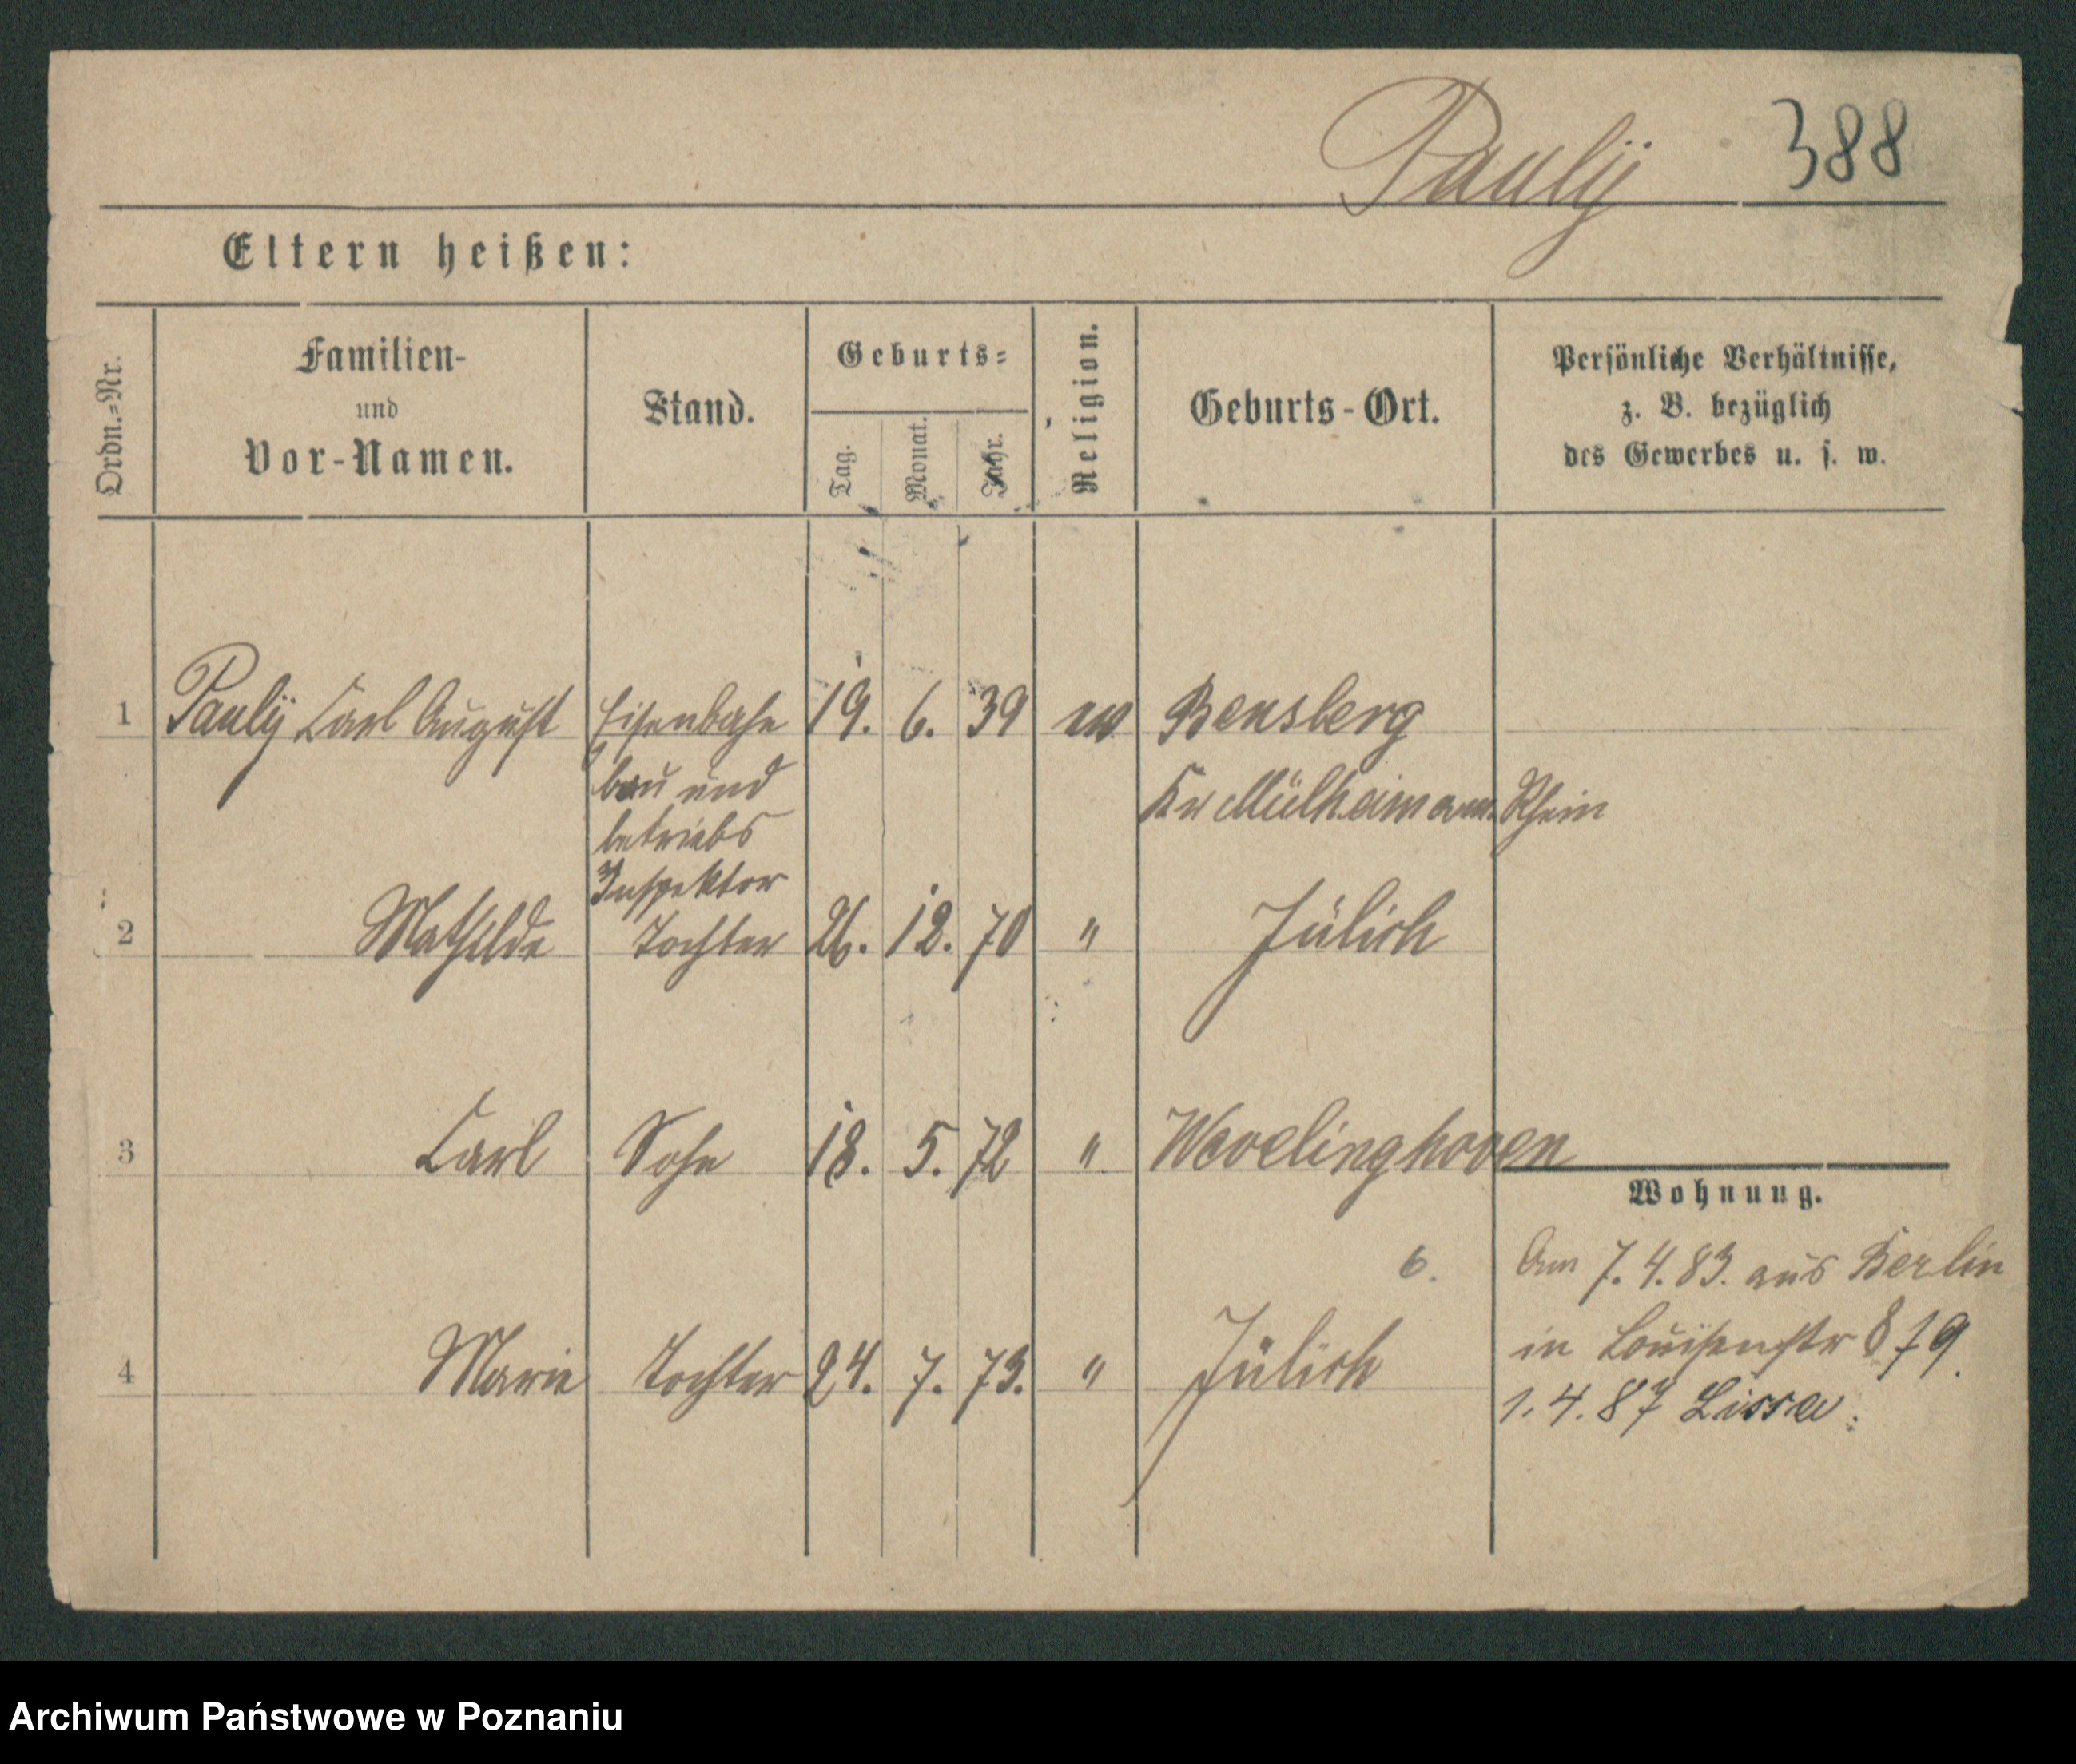 Paulÿ 388
Eltern heißen:
Ordn.=Nr. Familien- und Vor-Namen. Stand. Geburts= Tag. Monat. Jahr. Religion. Geburts-Ort. Persönliche Verhältnisse, z. B. bezüglich des Gewerbes u. s. w.
1 Paulÿ Carl August Eisenbahn 19. 6. 39 ev Bensberg
bau und Kr Mülheim am Rhein
betriebs
Inspektor
2 Mathilde Tochter 26. 12. 70 " Jülich
3 Carl Sohn 18. 5. 72 " Wevelinghoven
Wohnung.
6. Am 7. 4. 83. aus Berlin
in Louisenstr 19.
4 Marie Tochter 24. 7. 73. " Jülich
1. 4. 87 Lissa.
Archiwum Państwowe w Poznaniu